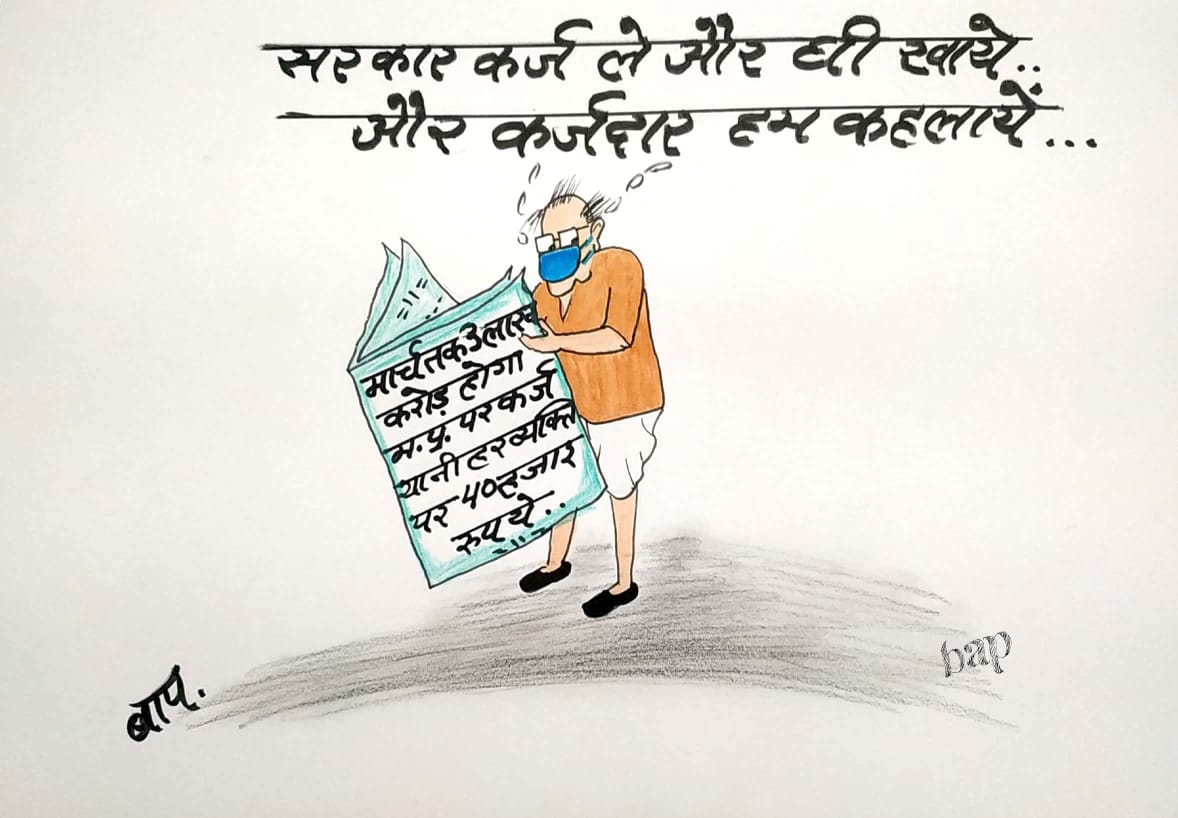 सरकार कर्ज ले और घी खाये..
और कर्जदार हम कहलायें...
मार्च तक 3 लाख
करोड़ होगा
म.प्र. पर कर्ज
यानी हर व्यक्ति
पर 40 हजार
रुपये..
bap
बाप.